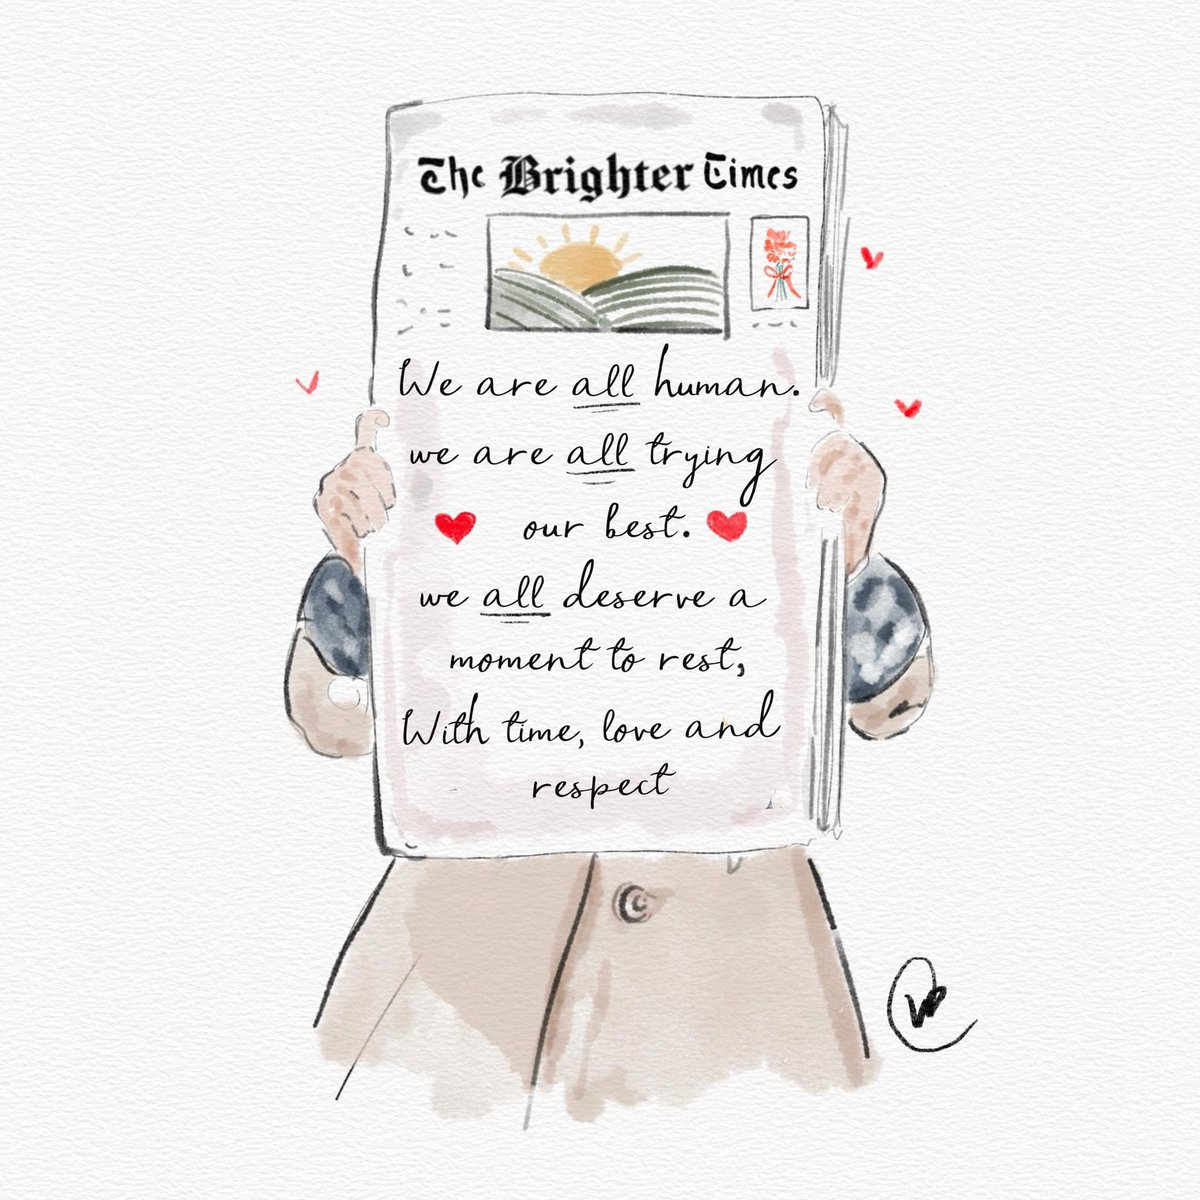 The Brighter Times
We are all human.
we are all trying
our best.
we all deserve a
moment to rest,
With time, love and
respect